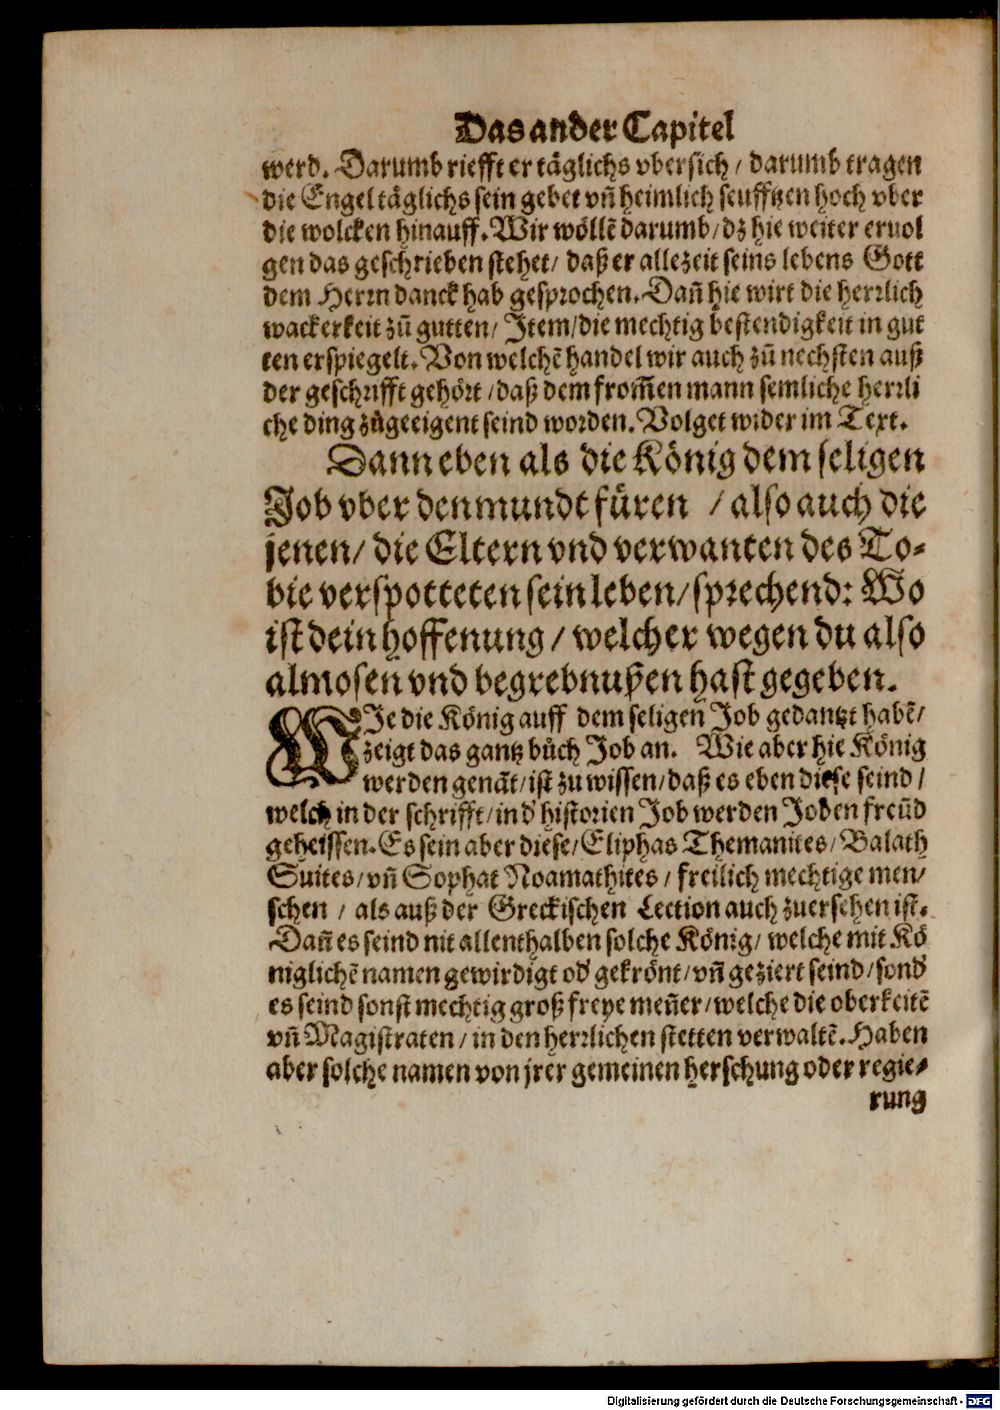 Das ander Capitel
werd. Darumb riefft er täglichs vbersich / darumb tragen
die Engel täglichs sein gebet vñ heimlich seufftzen hoch vber
die wolcken hinauff. Wir wöllẽ darumb / dz hie weiter eruol
gen das geschrieben stehet / daß er allezeit seins lebens Gott
dem Herrn danck hab gesprochen. Dañ hie wirt die herrlich
wackerkeit zũ gutten / Item / die mechtig bestendigkeit in gut
ten erspiegelt. Von welchẽ handel wir auch zũ nechsten auß
der geschrifft gehört / daß dem from̃en mann semliche herrli
che ding zůgeeigent seind worden. Volget wider im Text.
Dann eben als die König dem seligen
Job vber den mundt füren / also auch die
jenen / die Eltern vnd verwanten des To-
bie verspotteten sein leben / sprechend: Wo
ist dein hoffenung / welcher wegen du also
almosen vnd begrebnußen hast gegeben.
WJe die König auff dem seligen Job gedantzt habẽ /
zeigt das gantz bůch Job an. Wie aber hie König
werden genãt / ist zu wissen / daß es eben diese seind /
welch in der schrifft / in d' historien Job werden Joben freũd
geheissen. Es sein aber diese / Eliphas Themanites / Balath
Suites / vñ Sophat Noamathites / freilich mechtige men /
schen / als auß der Greckischen Lection auch zuersehen ist.
Dañ es seind nit allenthalben solche König / welche mit Kö
niglichẽ namen gewirdigt od' gekrönt / vñ geziert seind / sond'
es seind sonst mechtig groß freye meñer / welche die oberkeitẽ
vñ Magistraten / in den herrlichen stetten verwaltẽ. Haben
aber solche namen von jrer gemeinen herschung oder regie-
rung
Digitalisierung gefördert durch die Deutsche Forschungsgemeinschaft - DFG